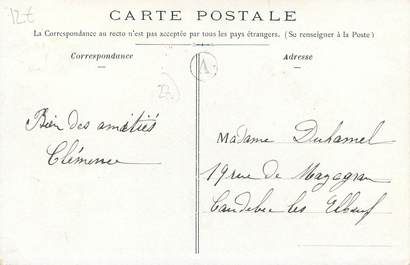 12€
CARTE POSTALE
La Correspondance au recto n'est pas acceptée par tous les pays étrangers. (Se renseigner à la Poste)
Correspondance
Adresse
A
Bien des amitiés
Clémence
Madame Duhamel
19 rue de Mazagran
Caudebec les Elbeuf